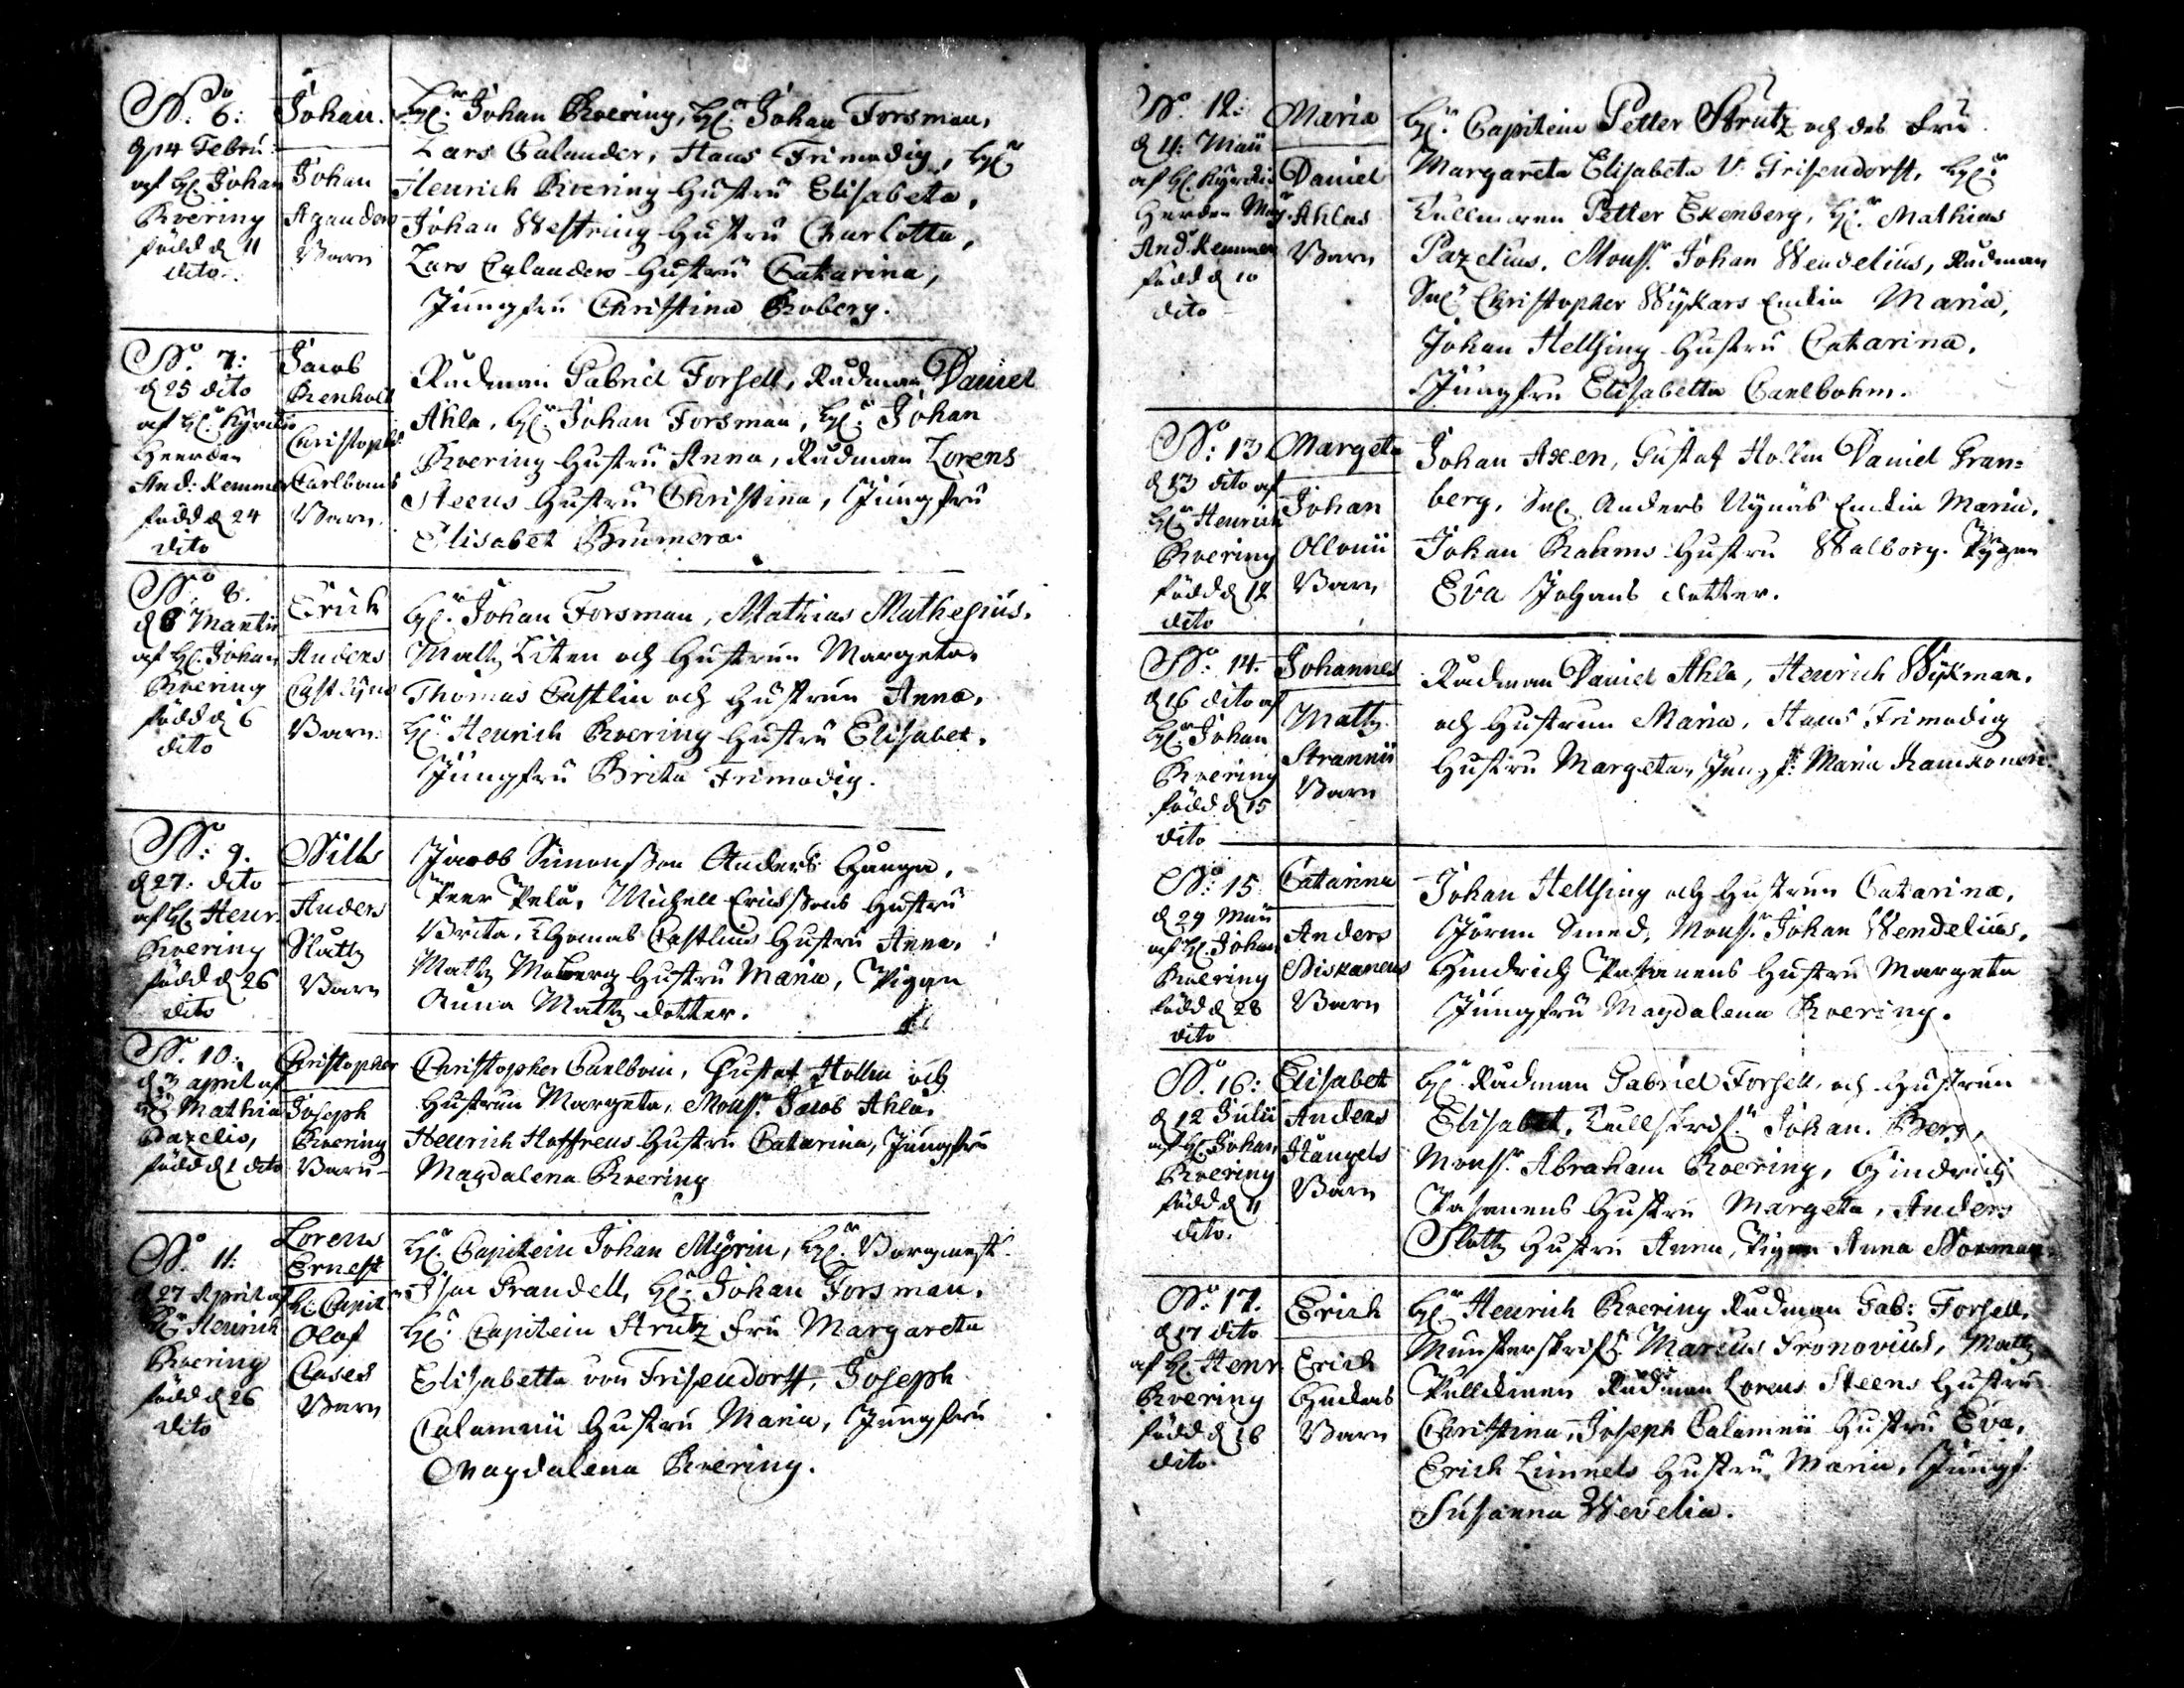 No 6:
d 14 Febru:
af H. Johan
Kroering
född d 11
dito.
Johan.
Johan
Aganders
Barn
H.r Johan Kroering, H.r Johan Forsman,
Lars Calander, Hans Frimodig, H.r
Henrich Kroering Hustru Elisabeta,
Johan Westring Hustru Charlotta,
Lars Calanders Hustru Catarina,
Jungfru Christina Roberg.
No. 7:
d 25 dito
af H.r Kyrckio
Heerden
And: Kemmer
född d 24
dito
Jacob
Renholt
Christoph:
Carlboms
Barn.
Rådman Gabriel Forsell, Rådman Daniel
Ahla, H.r Johan Forsman, H.r Johan
Kroering Hustru Anna, Rådman Lorens
Steens Hustru Christina, Jungfru
Elisabet Brumera.
No. 8.
d 8 Martii
af H. Johan
Kroering
född d 6
dito
Erich
Anders
Barn.
H.r Johan Forsman, Mathias Mathesius.
Matts Liten och Hustrun Margeta,
Thomas Castlin och Hustrun Anna,
H.r Henrich Kroering Hustru Elisabet.
Jungfru Brita Frimodig.
No. 9.
d 27. dito
af H. Henr.
Kroering
född d 26
dito
Nills
Anders
Slatts
Barn
Jacob Simonsson Anders Hanga,
Peer Pela, Michell Ericksons Hustru
Brita, Thomas Castlins Hustru Anna,
Matts Moberg Hustru Maria, Pigan
Anna Matts dotter.
No. 10:
d 3 april af
H.r Mathia
Pazelio,
född d 2 dito
Christopher
Joseph
Kroering
Barn
Christopher Carlbom, Gustaf Hollm och
Hustrun Margeta, Mons.r Jacob Ahla,
Henrich Hoffrens Hustru Catarina, Jungfru
Magdalena Kroering
No. 11:
d 27 April af
H.r Henrich
Kroering
född d 26
dito
Lorens
Ernest
H. Capit:
Olof
Clases
Barn
H.r Capitein Johan Myrin, H.r Borgmest.
Isac Prandell, H.r Johan Forsman.
H.r Capitein Strutz Fru Margareta
Elisabetta von Frisendorff, Joseph
Calamnii Hustru Maria, Jungfru
Magdalena Kroering.
No. 12:
d 11: Maii
af H. Kyrckio
Herden Mag.
And. Kemmer
född d 10
dito
Maria
Daniel
Ahlas
Barn
H.r Capitein Petter Strutz och des Fru
Margareta Elisabeta V. Frisendorff, H.r
Tullnären Petter Ekenberg, H.r Mathias
Pazelius, Mons.r Johan Wendelius, Rådman
Sal. Christopher Wijkars Enckia Maria,
Johan Hellsing Hustru Catarina,
Jungfru Elisabetta Carlbohm.
No: 13
d 13 dito af
H.r Henrich
Kroering
född d 12
dito
Margeta
Johan
Ollonii
Barn
Johan Axen, Gustaf Hollm Daniel Gran-
berg, Sal. Anders Nynäs Enckia Maria,
Johan Rahms Hustru Walborg. Pigan
Eva Johans dotter.
No. 14.
d 16 dito af
H.r Johan
Kroering
född d 15
dito
Johannes
Matts
Strannii
Barn
Rådman Daniel Ahla, Henrich Wijkman,
och Hustrun Maria, Hans Frimodig
Hustru Margeta, Jungf: Maria
No: 15
d 29 Maii
af H. Johan
Kroering
född d 28
dito
Catarina
Anders
Niskanens
Barn
Johan Hellsing och Hustrun Catarina,
Jöran Smed, Mons.r Johan Wendelius,
Hindrich Pasanens Hustru Margeta
Jungfru Magdalena Kroering.
No. 16:
d 12 Julii
af H. Johan
Kroering
född d 11
dito.
Elisabet
Anders
Hangels
Barn
H.r Rådman Gabriel Forsell, och Hustrun
Elisabet, Tullskrif.r Johan. Berg,
Mons.r Abraham Kroering, Hindrich
Pasanens Hustru Margeta, Anders
Slatts Hustru Anna, Pigan Anna Norman.
No. 17.
d 17 dito
af H. Henr
Kroering
född d 16
dito.
Erich
Erich
Barn
H.r Henrich Kroering Rådman Gab: Forsell,
Munsterskrif.r Marcus Fronovius, Matts
Pullckinen Rådman Lorens Steens Hustru
Christina, Joseph Calamnii Hustru Eva,
Erich Limnels Hustru Maria, Jungf.
Susanna Wevelia.